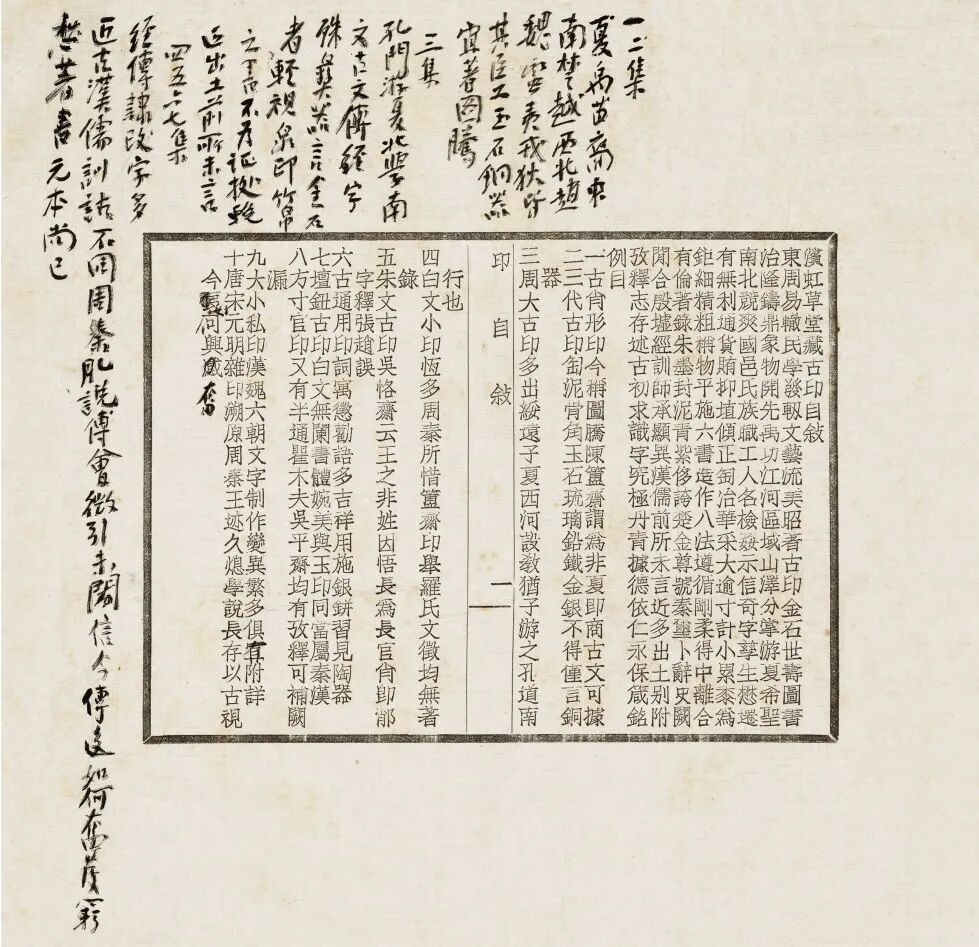 一二集
夏禹苗裔東
南楚越西北趙
魏蛮夷戎狄皆
其臣工玉石銅器
宜著圖騰
三集
孔門游夏北學南
文古文傳經字
殊彝器言金石
者輕視泉印竹帛
之書不考證據
近出土前所未言
四五六七集
經傳隸改字多
近古漢儒訓詁不同周秦臆說傅會徵引未闕信今傳遠如何奮發窮
愁著書元本尚已
濱虹草堂藏古印自敘
東周易轍民學發軔文藝流美昭著古印金石世壽圖書
冶隆鑄鼎象物開先禹功江河區域山澤分掌游夏希聖
南北競爽國邑氏族職工人各檢發示信奇字孳生懋遷
有無利通貨賄抑埴傾正匋冶華采大逾寸計小累黍為
鉅細精粗稱物平施六書造作八法遵循剛柔得中離合
有倫著錄朱墨封泥青紫侈誇楚金尊號秦璽卜辭史闕
聞合殷墟經訓師承顯異漢儒前所未言近多出土別附
攷釋志存述古初求識字究極丹青據德依仁永保箴銘
例目
一古肖形印今稱圖騰陳簠齋謂為非夏即商古文可據
二三代古印匋泥骨角玉石琉璃鉛鐵金銀不得僅言銅
器
三周大古印多出綏遠子夏西河設教猶子游之孔道南
印自敘
一
行也
四白文小印恆多周秦所惜簠齋印舉羅氏文徵均無著
錄
五朱文古印吳愙齋云王之非姓因悟長為長官肖即鄁
字釋張趙誤
六古通用印詞寓懲勸語多吉祥用施銀鉼習見陶器
七壇鈕古印白文無闌書體婉美與玉印同當屬秦漢
八方寸官印又有半通瞿木夫吳平齋均有攷釋可補闕
漏
九大小私印漢魏六朝文字制作變異繁多俱有附詳
十唐宋元明雜印溯原周秦王迹久熄學說長存以古視
今何興感奮